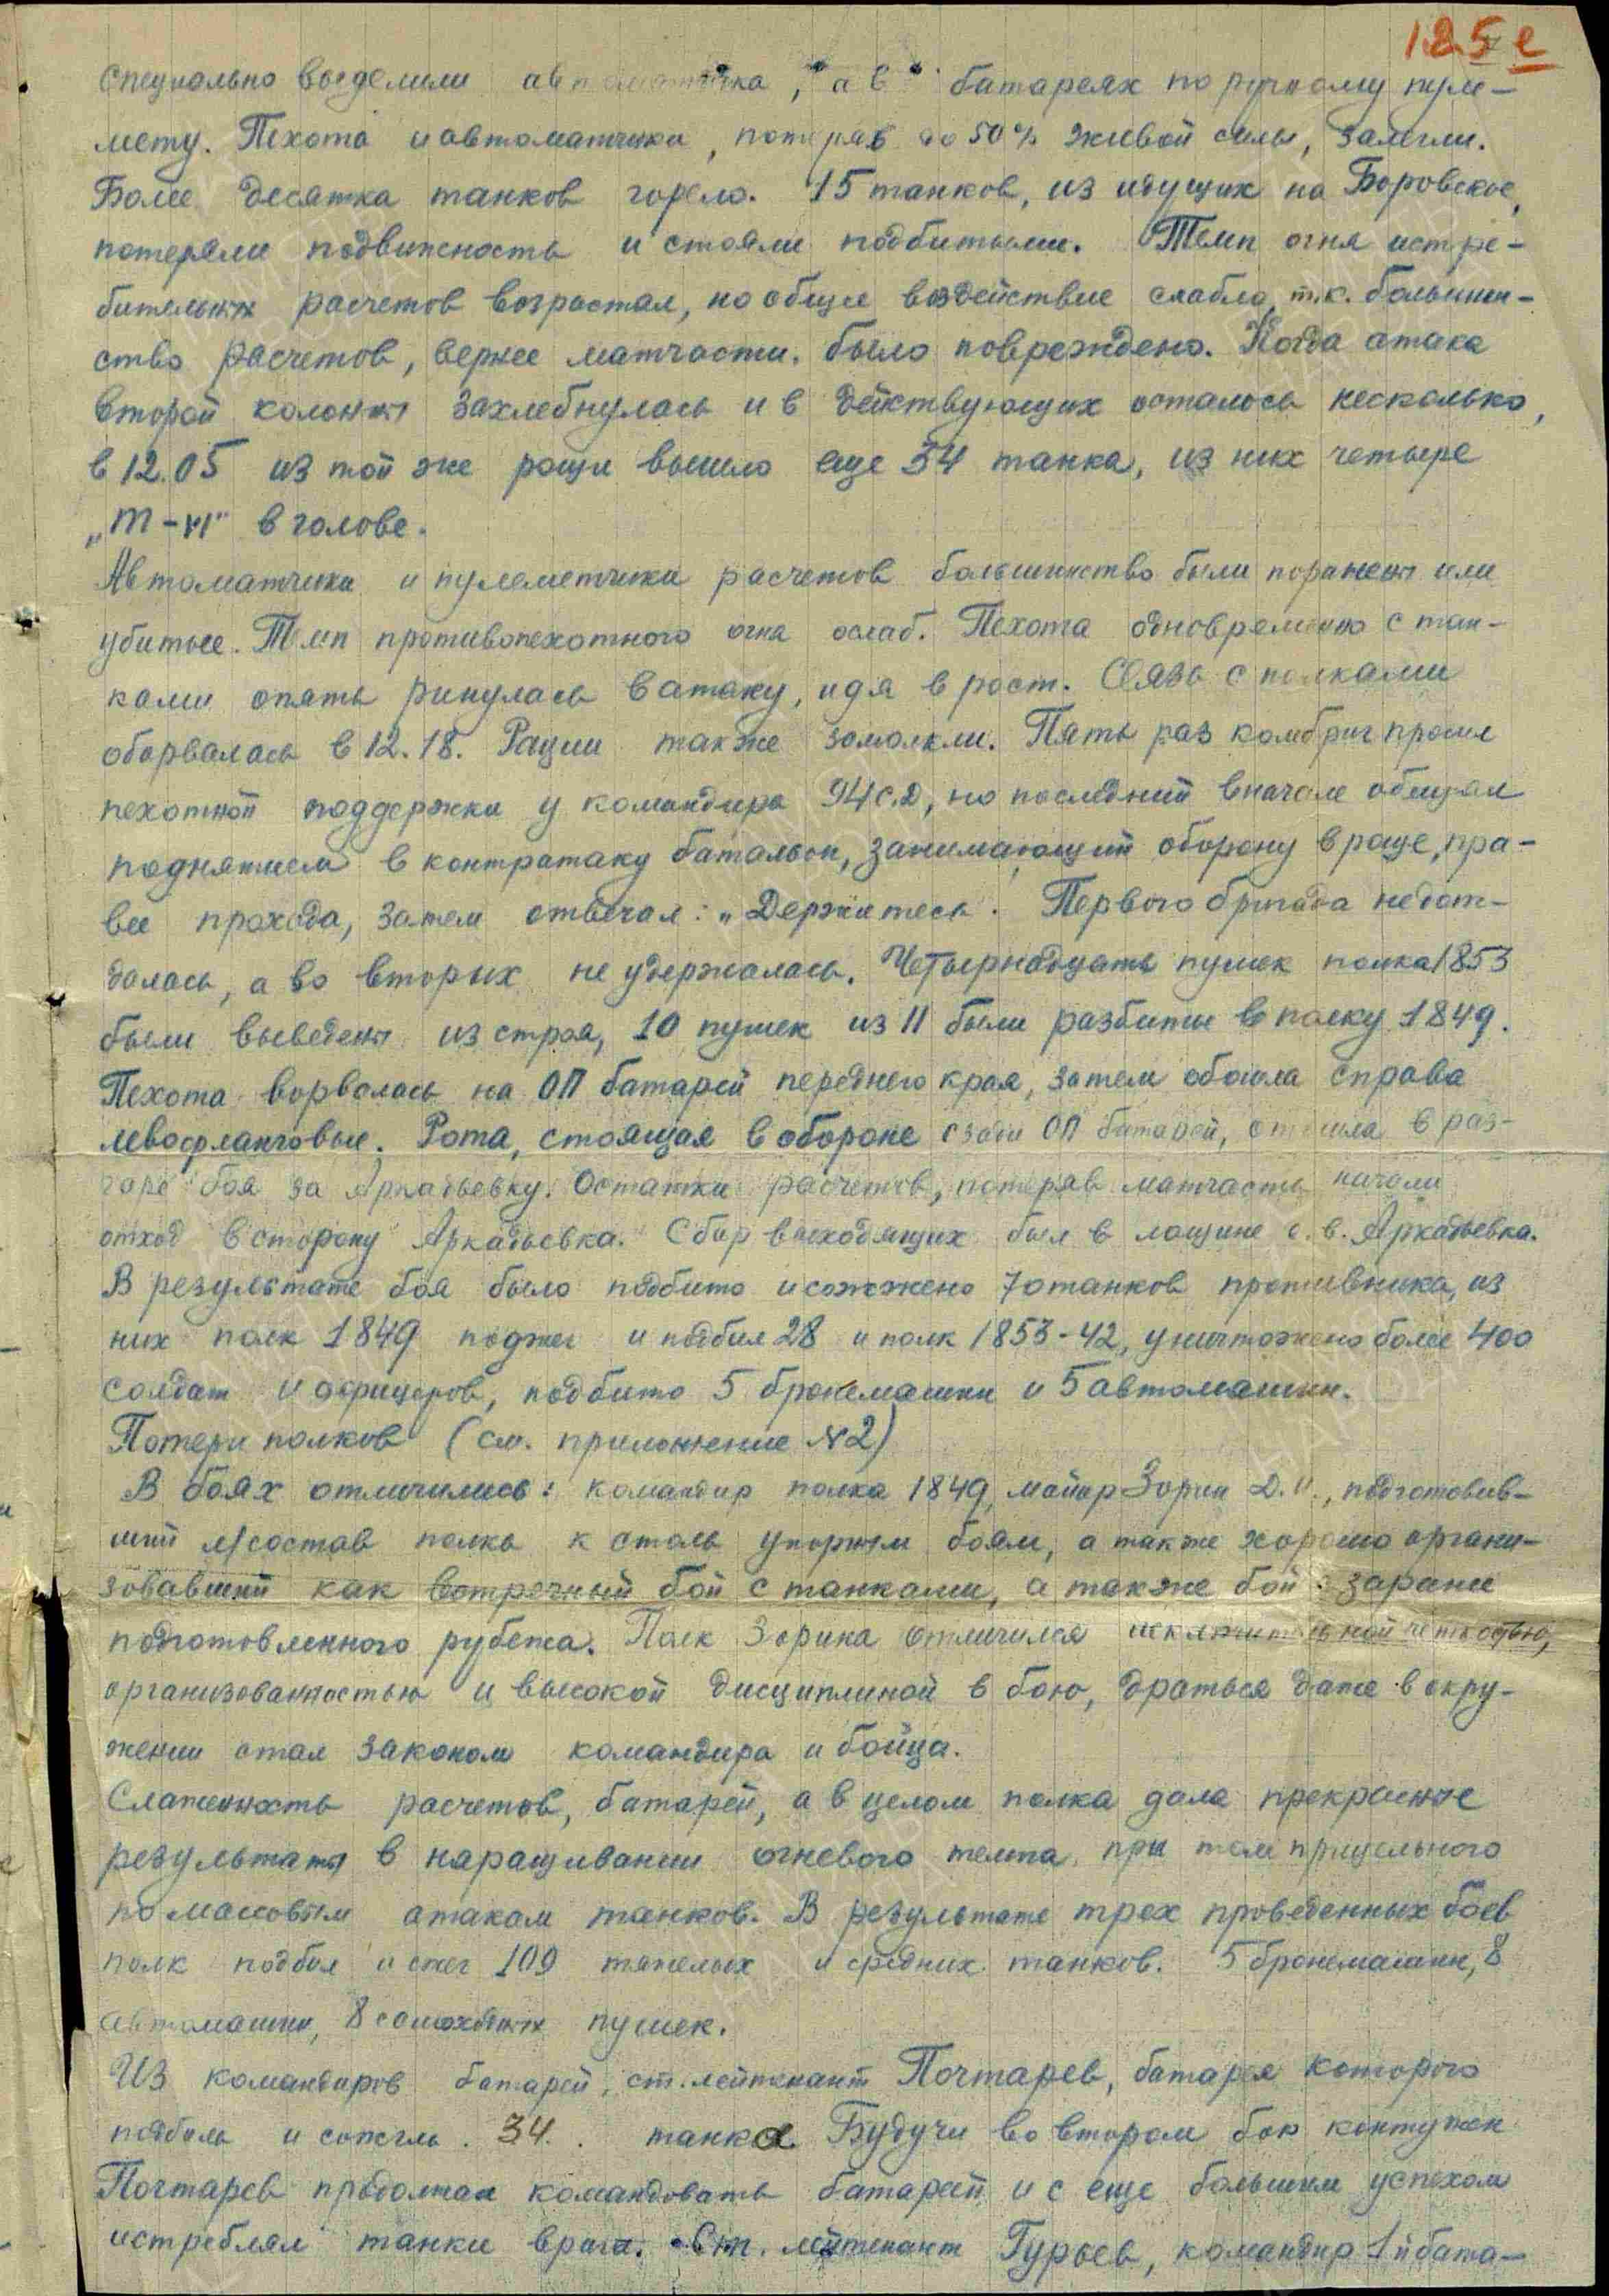 125 е
специально выделили автоматчика, а в батареях по ручному пуле-
мету. Пехота и автоматчики, потеряв до 50% живой силы, залегли.
Более десятка танков горело. 15 танков, из идущих на Боровское,
потеряли подвижность и стояли подбитыми. Темп огня истре-
бительных расчетов возрастал, но общее воздействие слабло, т.к. большин-
ство расчетов, вернее матчасти, было повреждено. Когда атака
второй колонны захлебнулась и в действующих осталось несколько,
в 12.05 из той же рощи вышло еще 34 танка, из них четыре
в голове.
Автоматчики и пулеметчики расчетов большинство были поранены или
убитые. Темп противопехотного огня ослаб. Пехота одновременно с тан-
ками опять ринулась в атаку, идя в рост. Связь с полками
оборвалась в 12.18. Рации также замолкли. Пять раз комбриг просил
пехотной поддержки у командира 94 с.д, но последний вначале обещал
поднятием в контратаку батальон, занимающий оборону в роще, пра-
вее прохода, затем отвечал: „Держитесь". Первого бригада недож-
далась, а во вторых не удержалась. Четырнадцать пушек полка 1853
были выведены из строя, 10 пушек из 11 были разбиты в полку 1849.
Пехота ворвалась на ОП батарей переднего края, затем обошла справа
левофланговые. Рота, стоящая в обороне сзади ОП батарей, отошла в раз-
гаре боя за Аркадьевку. Остатки расчетов, потеряв матчасть начали
отход в сторону Аркадьевка. Сбор выходящих был в лощине с.в. Аркадьевка.
В результате боя было подбито и сожжено 70 танков противника, из
них полк 1849 поджег и подбил 28 и полк 1853-42, уничтожено более 400
солдат и офицеров, подбито 5 бронемашин и 5 автомашин.
Потери полков (см. приложение №2)
В боях отличились: командир полка 1849, майор Зорин Д.И., подготовив-
ший л/состав полка к столь упорным боям, а также хорошо органи-
зовавший как встречный бой с танками, а также бой с заранее
подготовленного рубежа. Полк Зорина отличился исключительной четкостью,
организованностью и высокой дисциплиной в бою, драться даже в окру-
жении стал законом командира и бойца.
Слаженность расчетов, батарей, а в целом полка дала прекрасные
результаты в наращивании огневого темпа, при том прицельного
по массовым атакам танков. В результате трех проведенных боев
полк подбил и сжег 109 тяжелых и средних танков. 5 бронемашин, 8
автомашин, 8 самоходных пушек.
Из командиров батарей, ст. лейтенант Почтарев, батарея которого
подбила и сожгла 34 танка Будучи во втором бою контужен
Почтарев продолжал командовать батареей и с еще большим успехом
истреблял танки врага. Ст. лейтенант Гурьев, командир 1й бата-